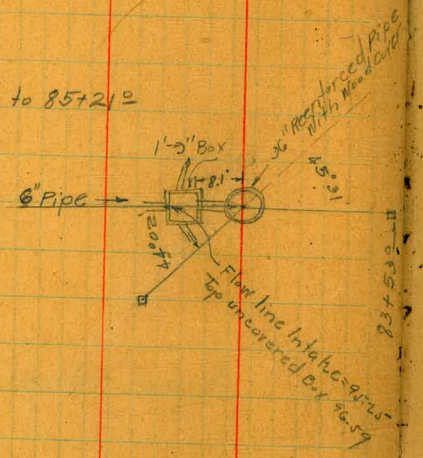 to 85+21º
36" Reenforced Pipe
With Wood Cover
1'-9" Box
8.1'
45°31
6" Pipe
Flow line Intake = 95.25
Top uncovered Box 96.59
83+53º